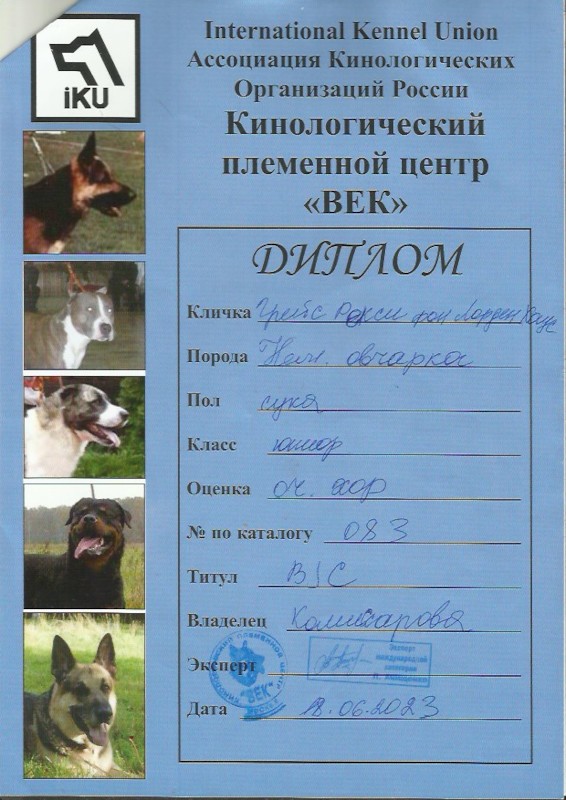 iKU
International Kennel Union
Ассоциация Кинологических
Организаций России
Кинологический
племенной центр
«ВЕК»
ДИПЛОМ
Кличка Грейс Рокси фон Лорден Хаус
Порода Нем. овчарка
Пол сука
Класс юниор
Оценка оч. хор
№ по каталогу 083
Титул BJC
Владелец
Эксперт
Эксперт
международной
категории
"ВЕК"
Дата 18.06.2023